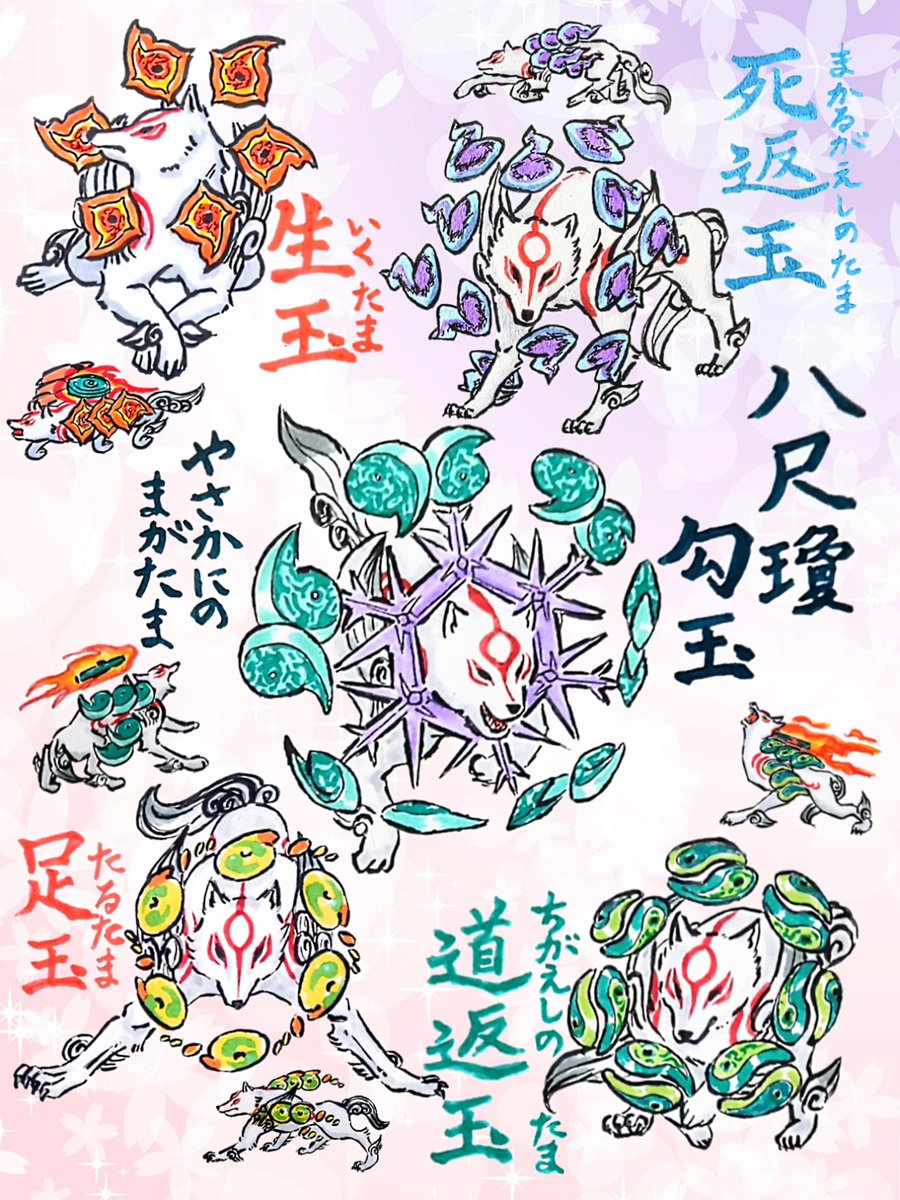 死返玉
まかるがえしのたま
生玉
いくたま
八尺瓊
勾玉
やさかにの
まがたま
足玉
たるたま
道返玉
ちがえしの
たま